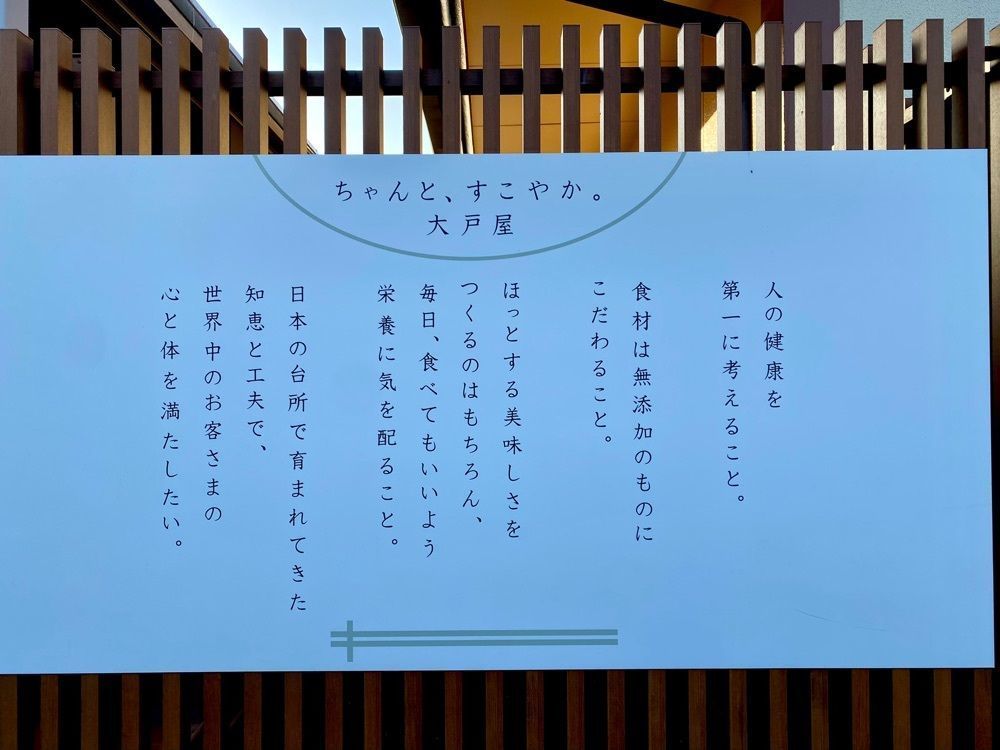 ちゃんと、すこやか。
大戸屋
人の健康を
第一に考えること。
食材は無添加のものに
こだわること。
ほっとする美味しさを
つくるのはもちろん、
毎日、食べてもいいよう
栄養に気を配ること。
日本の台所で育まれてきた
知恵と工夫で、
世界中のお客さまの
心と体を満たしたい。